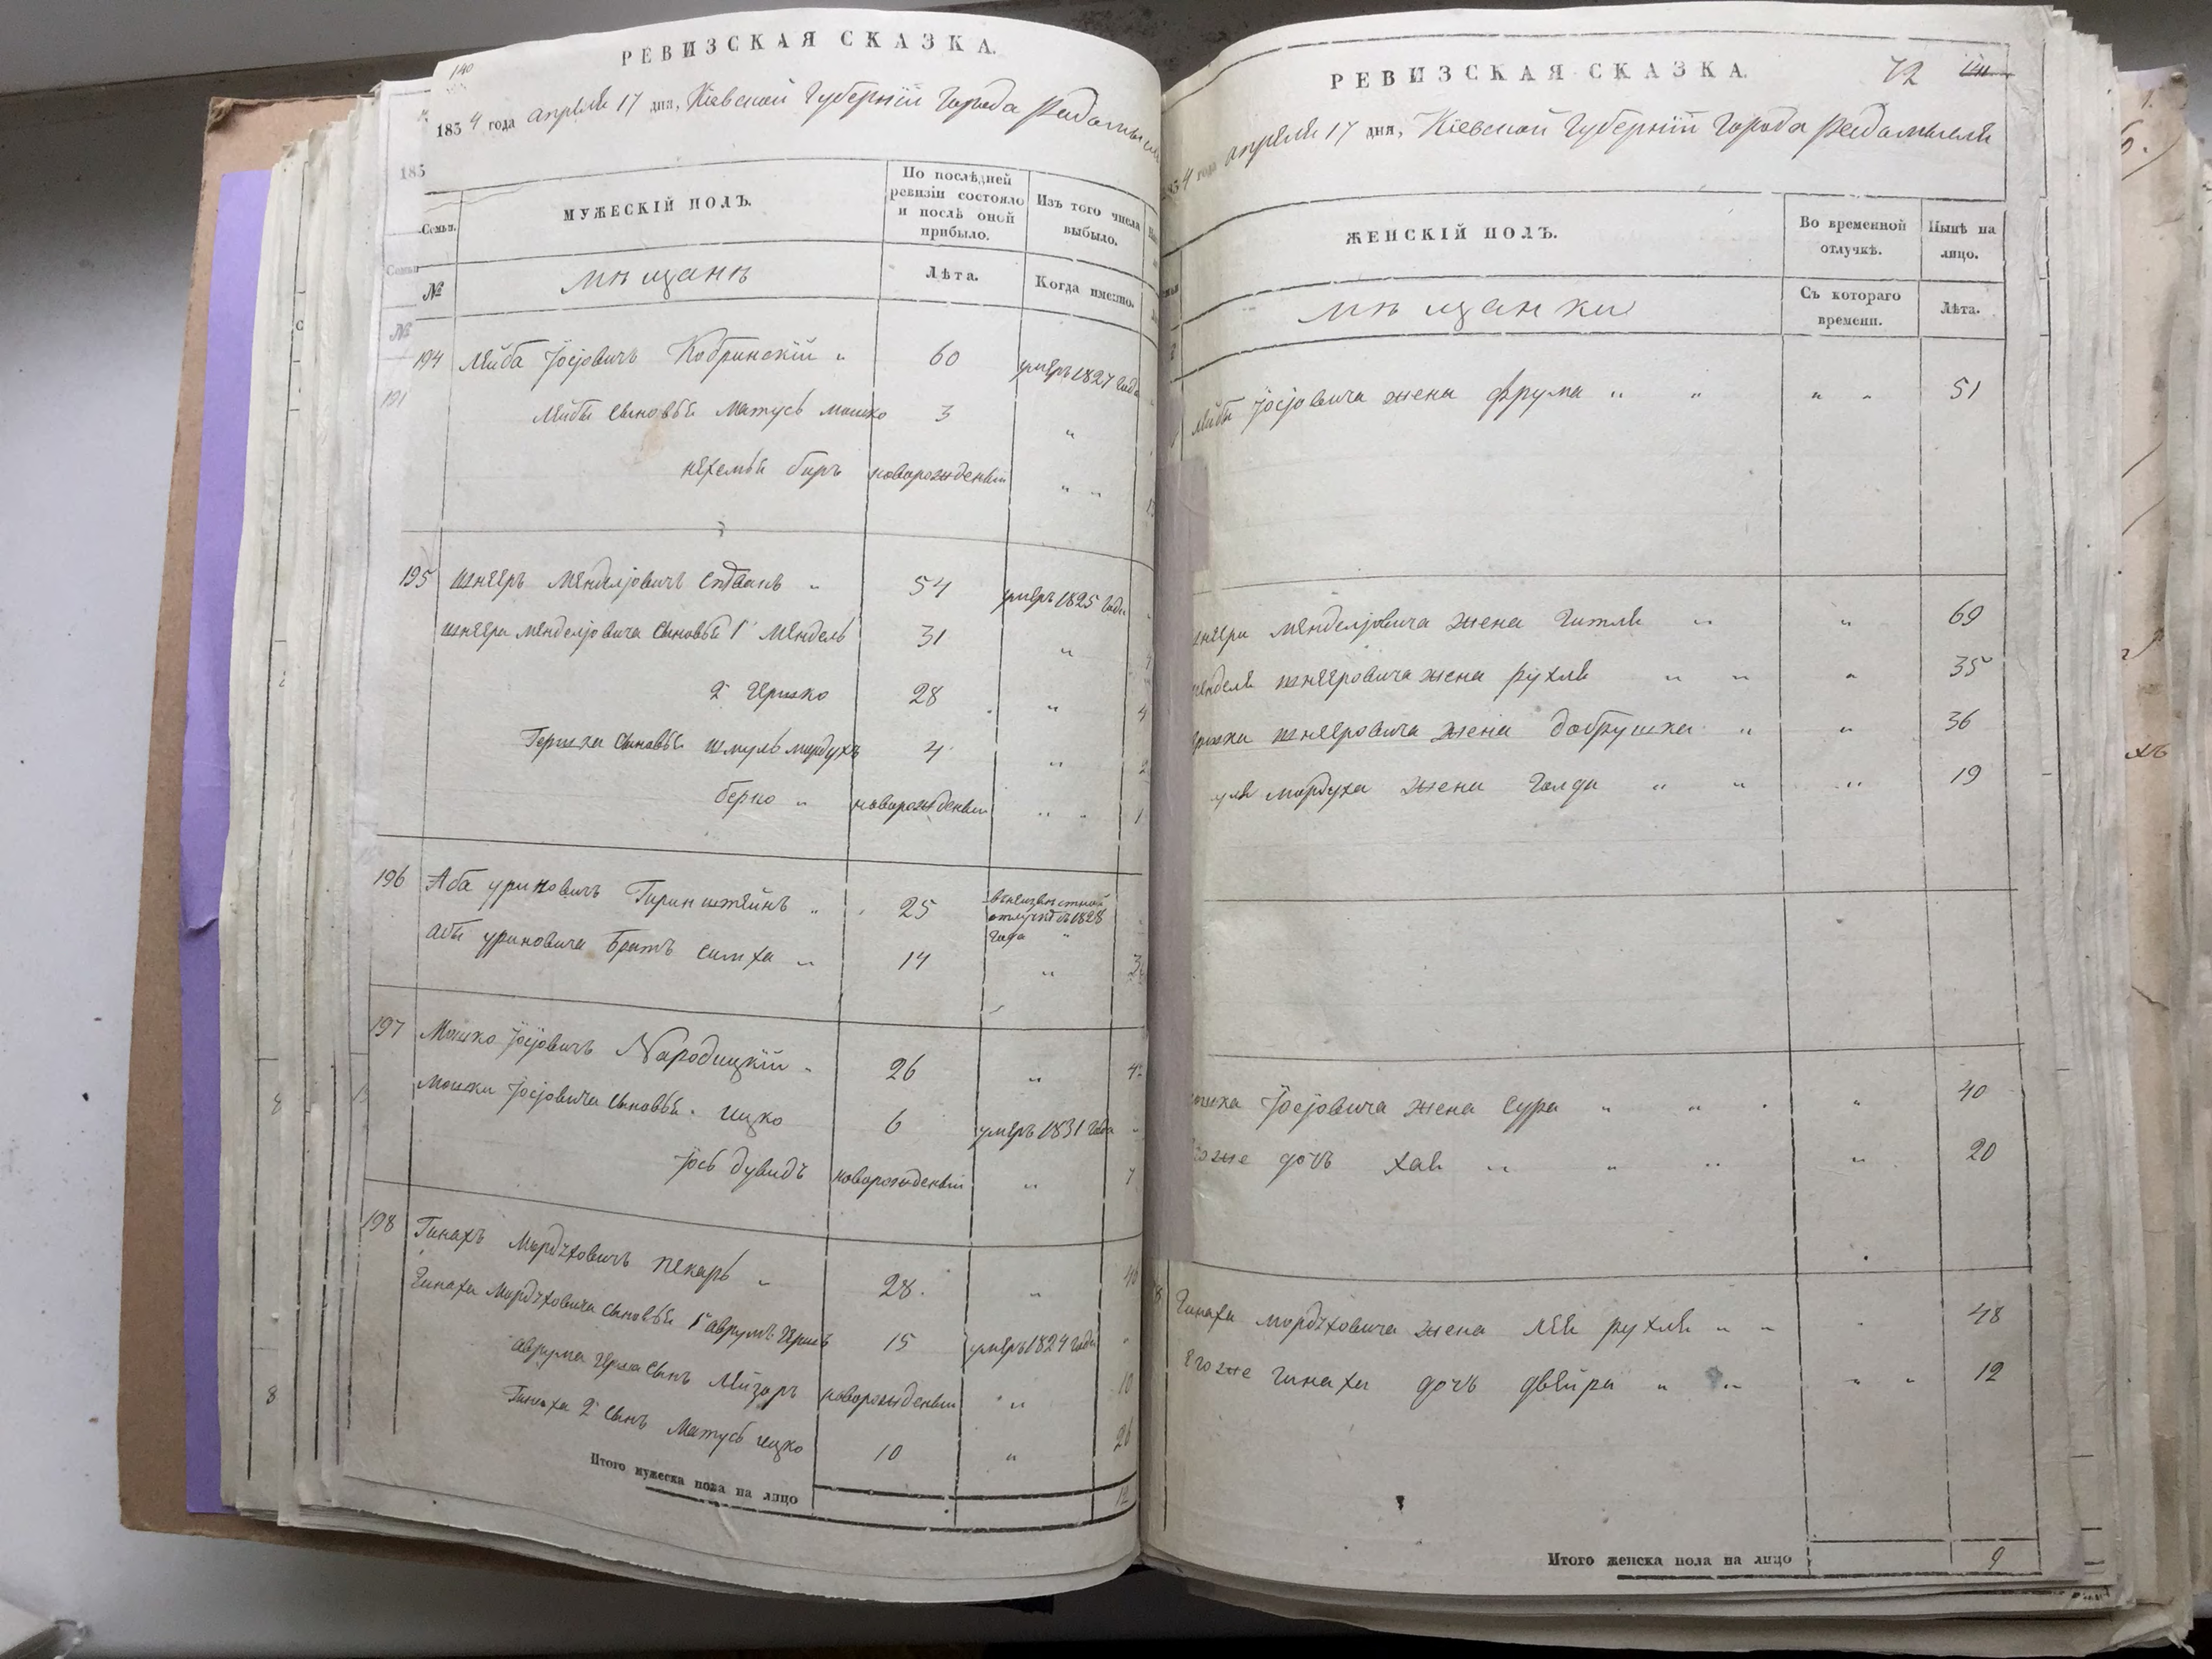 140
РЕВИЗСКАЯ СКАЗКА.
1834 года апреля 17 дня, Кіевской Губерніи Города Радомысля
183
Семьи.
МУЖЕСКІЙ ПОЛЪ.
По послѣдней ревизіи состояло и послѣ оной прибыло.
Изъ того числа выбыло.
Семьи
№
мѣщанѣ
Лѣта.
Когда именно.
№
194 Лейба Іосіовичъ Кобринскій „ 60 умеръ 1827 года
191
Лейбы сыновьи Матусь Мошко 3 „
Нехемьи Беръ новорожденый „ „
195 Шнееръ Менделіовичъ 54 умеръ 1825 года
Шнеера Менделіовича сыновьи 1 Мендель 31 „
2 Гершко 28 „ 4
Гершка сыновьи Шмуль Мордухъ 4 „ 2
Берко „ новорожденый „ „ 1
196 Аба Уриновичъ Гиринштейнъ „ 25 въ неизвѣстной отлучкѣ съ 1828 года „
Абы Уриновича братъ Симха „ 14 „ 3
197 Мошко Іосіовичъ Народицкій „ 26 „ 4
Мошки Іосіовича сыновьи Ицко 6 умеръ 1831 года „
Іось Дувидъ новорожденый „ 7
198 Гинахъ Мордуховичъ Пекаръ „ 28 „
Гинаха Мордуховича сыновьи 1 Аврумъ Гершъ 15 умеръ 1824 года „
Аврума Герша сынъ Лейзоръ новорожденый „ 10
Гинаха 2 сынъ Матусь Ицко 10 „ 26
Итого мужеска пола на лицо 12
РЕВИЗСКАЯ СКАЗКА.
72 141
1834 года апреля 17 дня, Кіевской Губерніи Города Радомысля
ЖЕНСКІЙ ПОЛЪ.
Во временной отлучкѣ.
Нынѣ на лицо.
мѣщанки
Съ котораго времени.
Лѣта.
Лейбы Іосіовича жена Фрума „ „ „ „ 51
Шнеера Менделіовича жена Гитля „ „ 69
Менделя Шнееровича жена Рухля „ „ „ 35
Гершка Шнееровича жена Добрушка „ „ 36
Мордуха жена Голда „ „ „ 19
Мошка Іосіовича жена Сура „ „ „ 40
дочь Хая „ „ „ „ 20
Гинаха Мордуховича жена Лея Рухля „ „ „ 48
Егоже Гинаха дочь Двейра „ „ „ „ 12
Итого женска пола на лицо 9